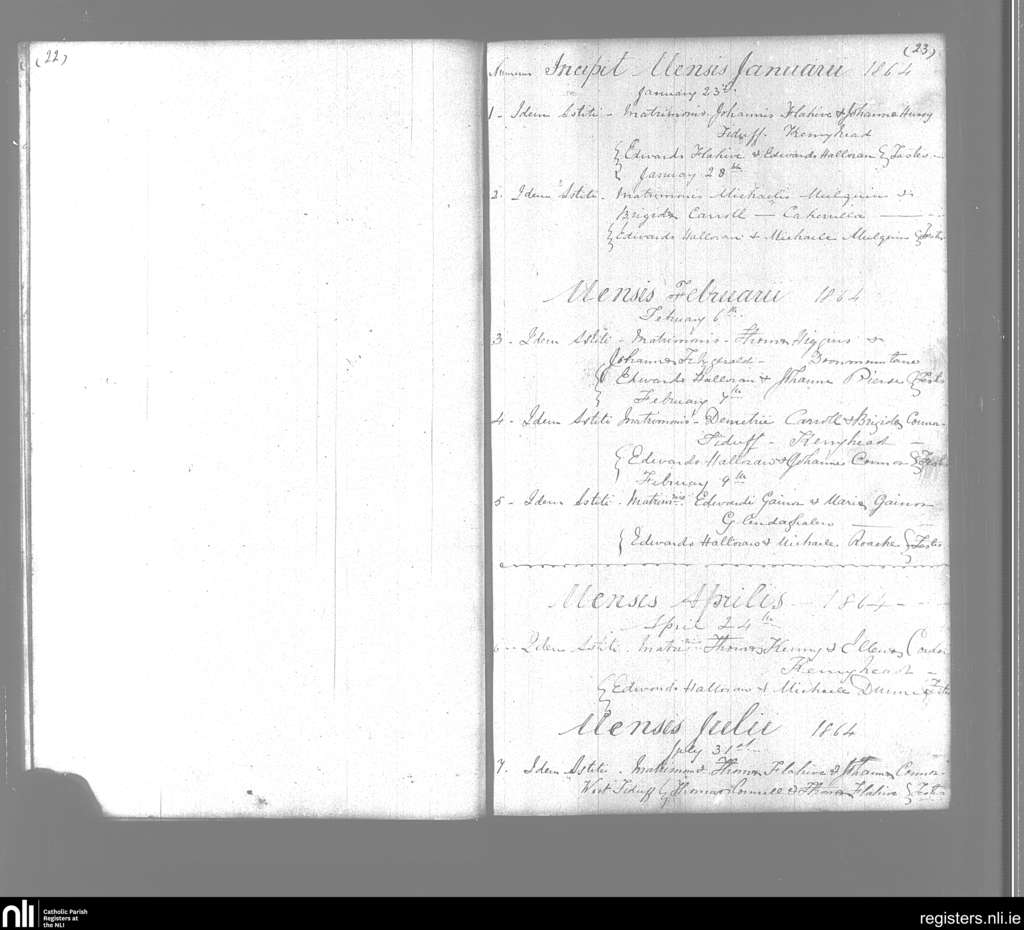 (22)
(23)
Numerus Incipit Mensis Januarii 1864
January 23rd
1 - Idem Astiti - Matrimonio Johannis Flahive & Johanna Hussey
Tiduff. Kerryhead
Edwardo Flahive & Edwardo Halloran Testes
January 28th
2. Idem Astiti. Matrimonio Michaelis Mulquin &
Brigida Carroll —
Edwardo Halloran & Michaele Mulquin Testes
Mensis Februarii 1864
February 6th
3 - Idem Astiti - Matrimonio - Thoma Higgins &
Johanna Fitzgerald -
Edwardo Halloran & Johanna Pierse Testes
February 7th
4 - Idem Astiti Matrimonio - Demetrii Carroll & Brigida Connor
Tiduff - Kerryhead —
Edwardo Halloran & Johannes Connor Testes
February 9th
5 - Idem Astiti - Matrimo Edwardi Gainor & Maria Gainor
Edwardo Halloran & Michaele Roache Testes
Mensis Aprilis - 1864 -
April 24th
6 - Idem Astiti. Matri Thoma Kenny & Ellena
Kerryhead -
Edwardo Halloran & Michaele
Mensis Julii 1864
July 31st
7. Idem Astiti. Matrimonio Thoma Flahive & Johanna Connor
West Tiduff Thoma Connell & Thoma Flahive Testes
nli
Catholic Parish
Registers at
the NLI
registers.nli.ie